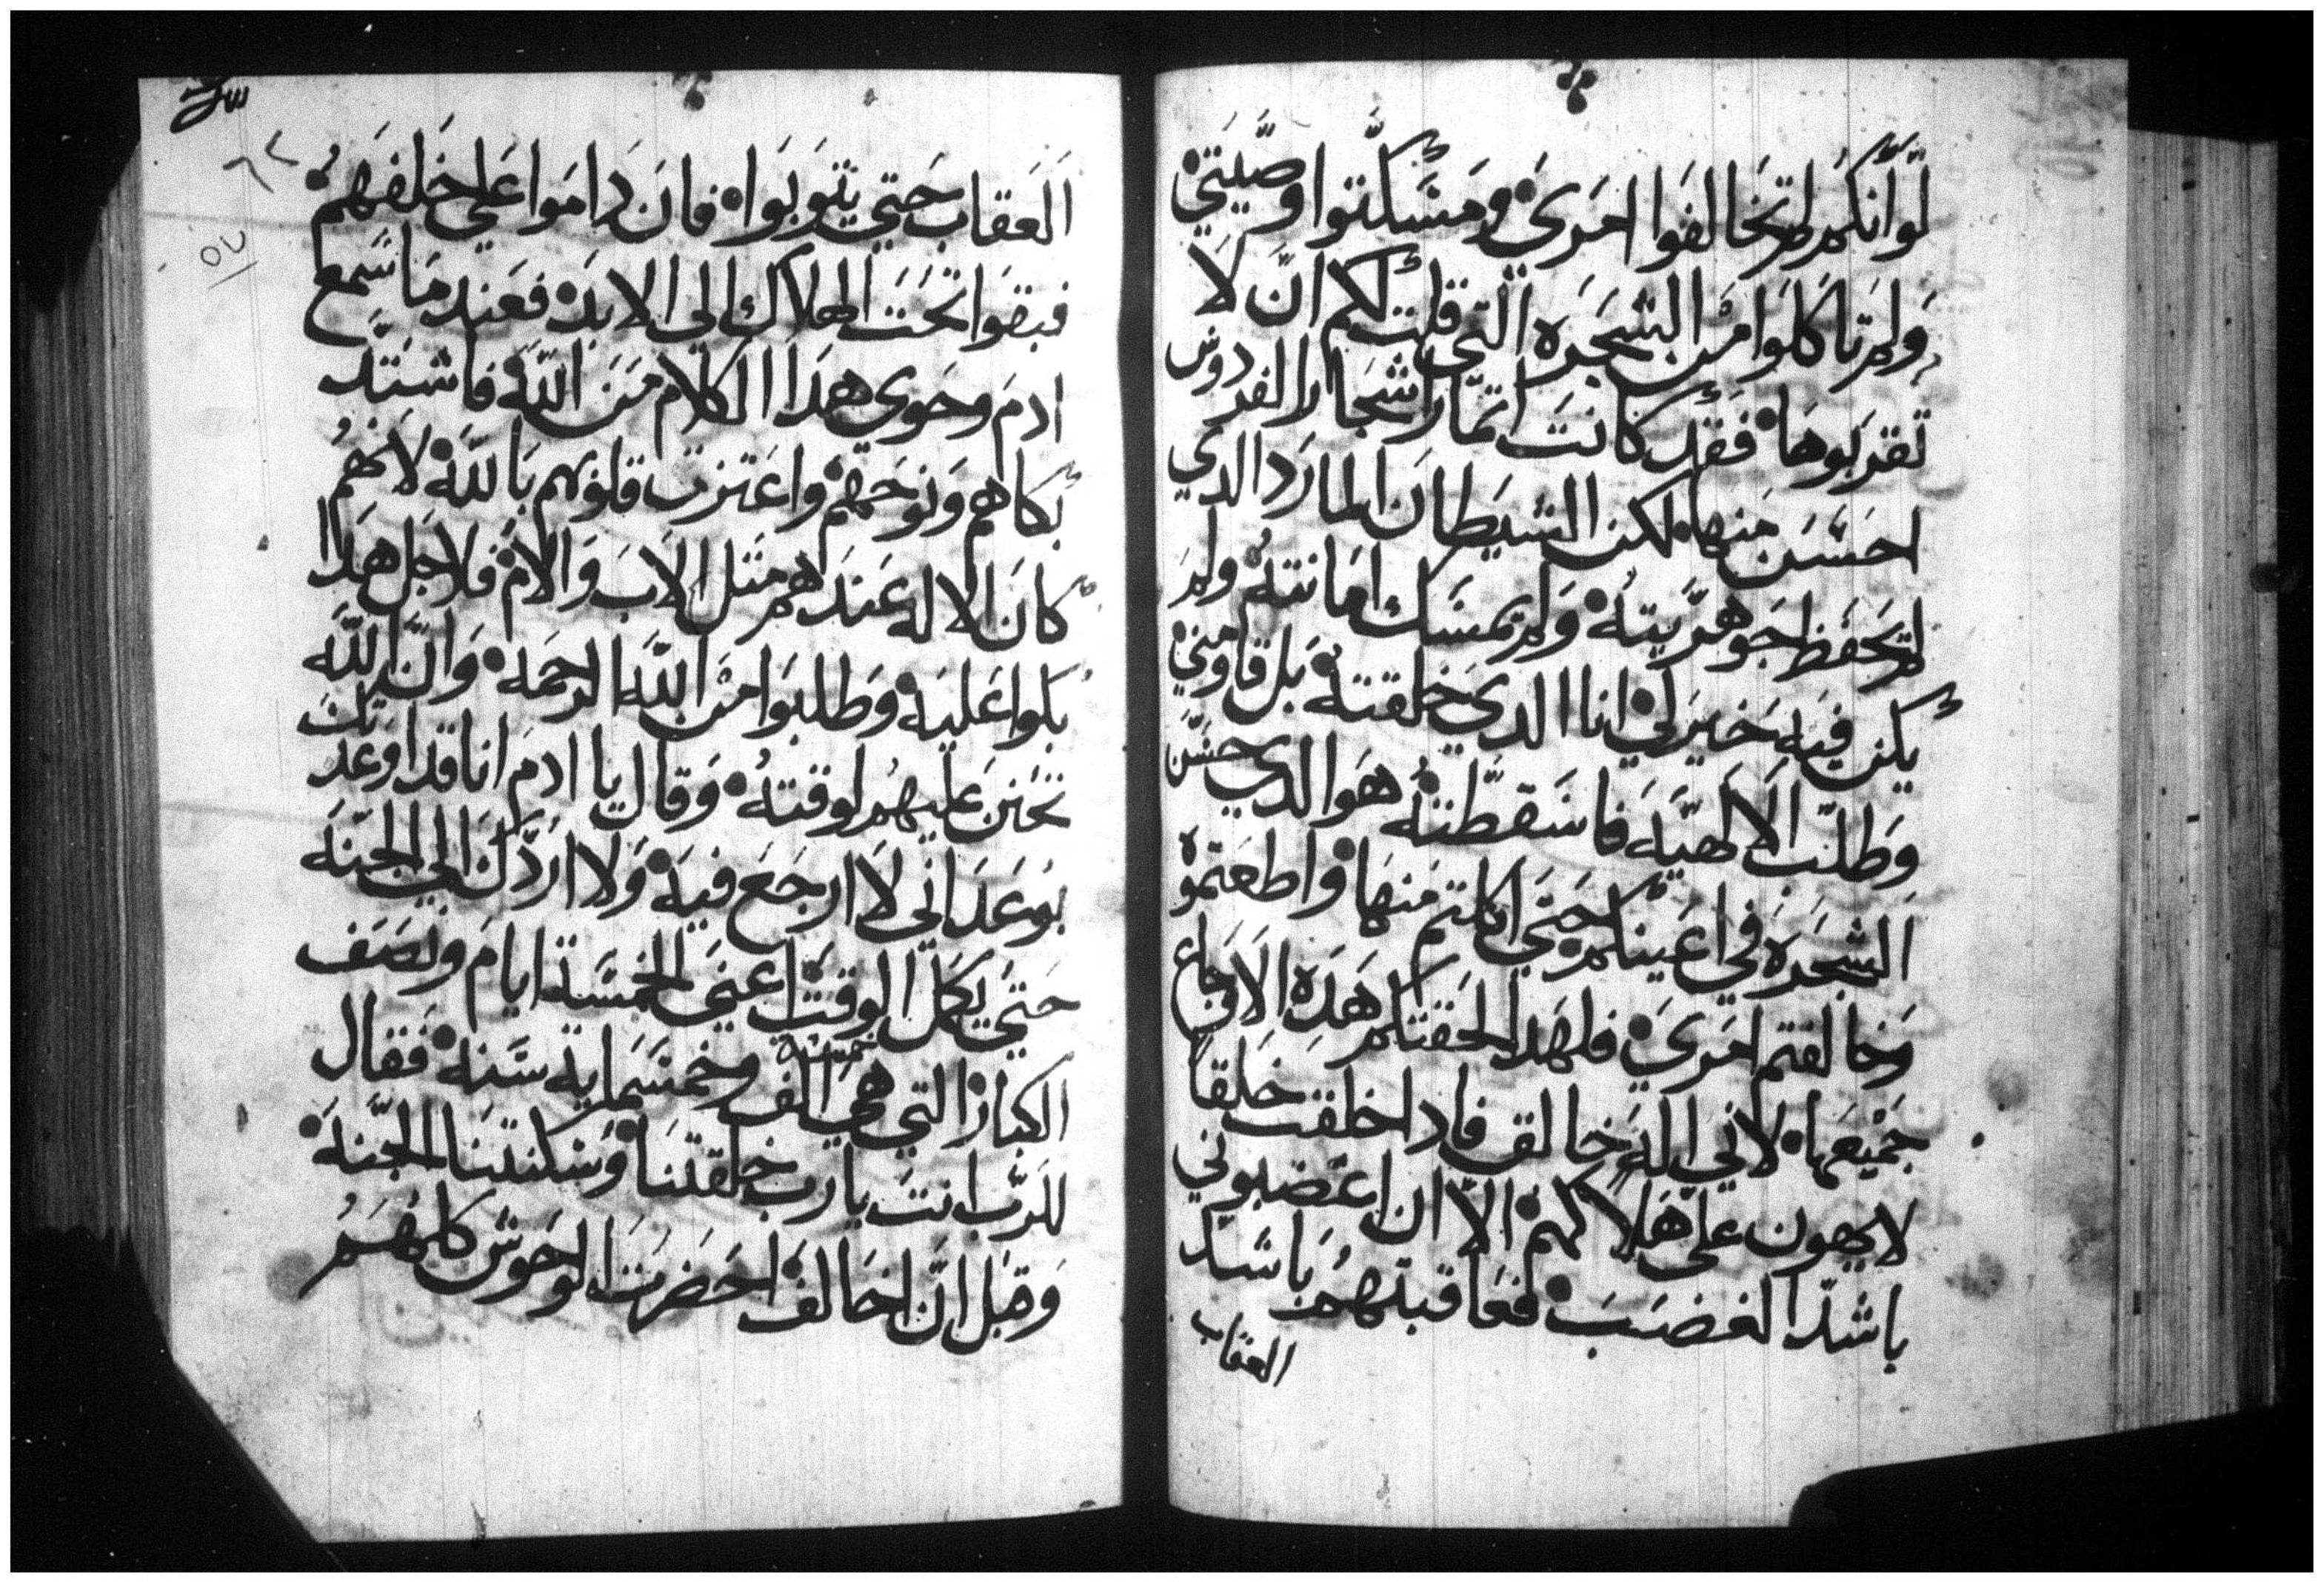 لو انكم لم تخالفوا امري ومسكتوا وصيتي
ولم تاكلوا من الشجره التي قلت لكم ان لا
تقربوها فقد كانت اتمار اشجار الفردوس
احسن منها لكن الشيطان المارد الدي
لم يحفظ جوهريته ولم يمسك امانته ولم
يكن فيه خير لي انا الدي خلقته بل قاومني
وطلب الالهيه فاسقطته هو الدي حسن
الشجره في اعينكم حتي اكلتم منها واطعتموه
وخالفتم امري فلهدا لحقتكم هده الاوجاع
جميعها لاني اله خالق فادا خلقت خلقا
لا يهون علي هلاكهم الا ان اغضبوني
باشد الغضب فعاقبتهم باشد
العقاب
العقاب حتي يتوبوا فان داموا علي خلفهم
فبقوا تحت الهلاك الي الابد فعند ما سمع
ادم وحوي هدا الكلام من الله فاشتد
بكاهم ونوحهم واعتزت قلوبهم بالله لانهم
كان الاله عندهم متل الاب والام فلاجل هدا
بكوا عليه وطلبوا من الله الرحمه وان الله
تحنن عليهم لوقته وقال يا ادم انا قد اوعدتك
بوعد اني لا ارجع فيه ولا اردك الي الجنه
حتي يكمل الوقت اعني الخمسة ايام ونصف
الكبار التي هي خمسة الف وخمسماية سنه فقال
للرب انت يا رب خلقتنا وسكنتنا الجنه
وقبل ان اخالف احضرت الوحوش كلهم